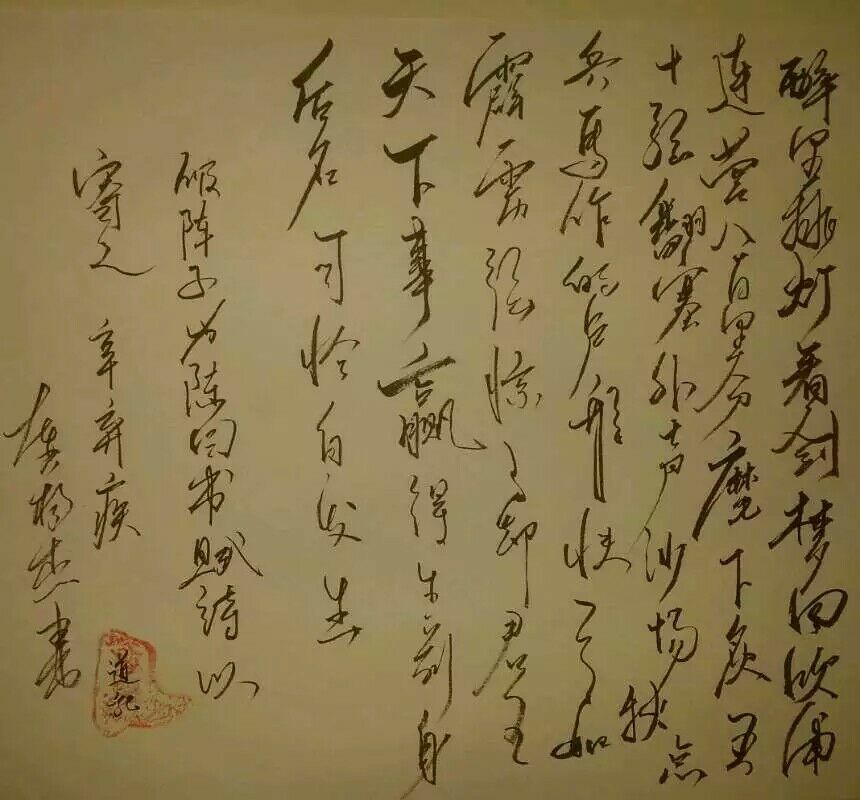 醉里挑灯看剑梦回吹角
连营八百里分麾下炙五
十弦翻塞外声沙场秋点
兵马作的卢飞快弓如
霹雳弦惊了却君王
天下事赢得生前身
后名可怜白发生
破阵子为陈同甫赋诗以
寄之 辛弃疾
书